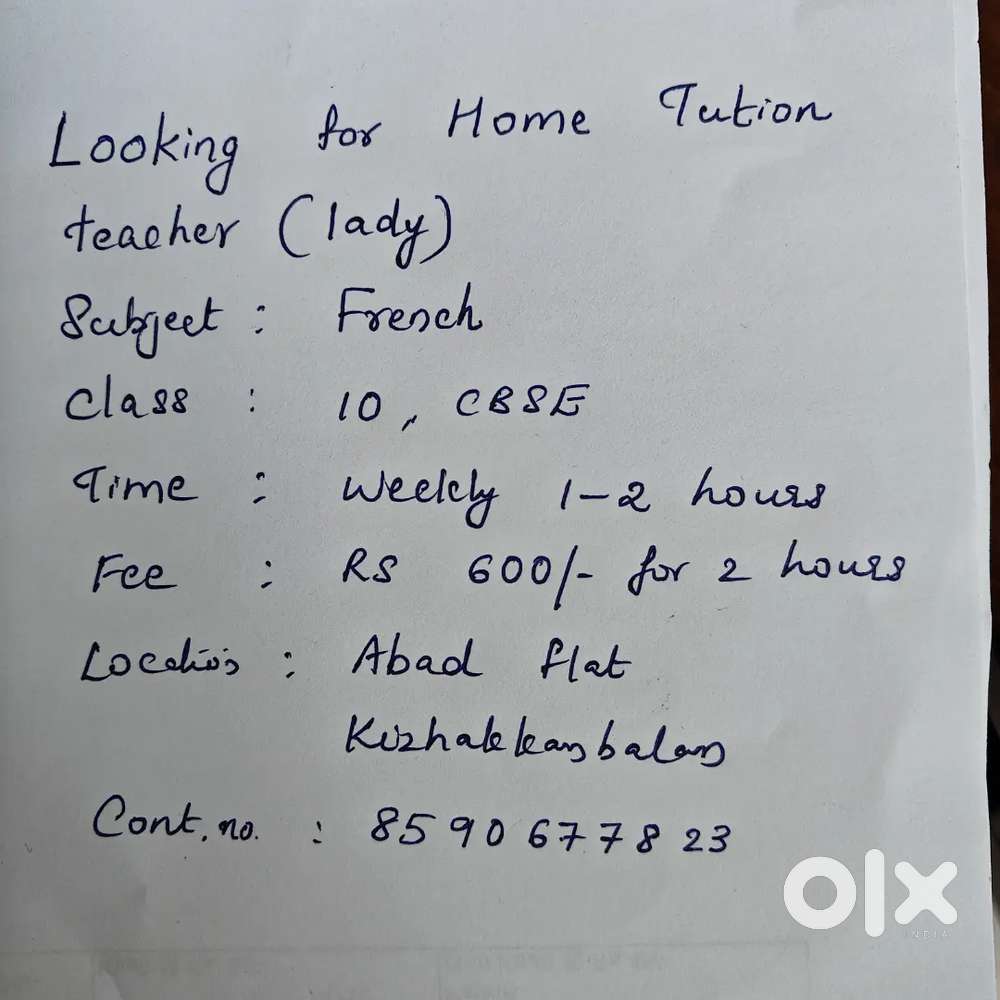 Looking for Home Tution
teacher (lady)
Subject : French
Class : 10, CBSE
Time : Weekly 1-2 hours
Fee : RS 600/- for 2 hours
Location : Abad flat
Kizhakkambalam
Cont. no. : 8590677823
olx
INDIA